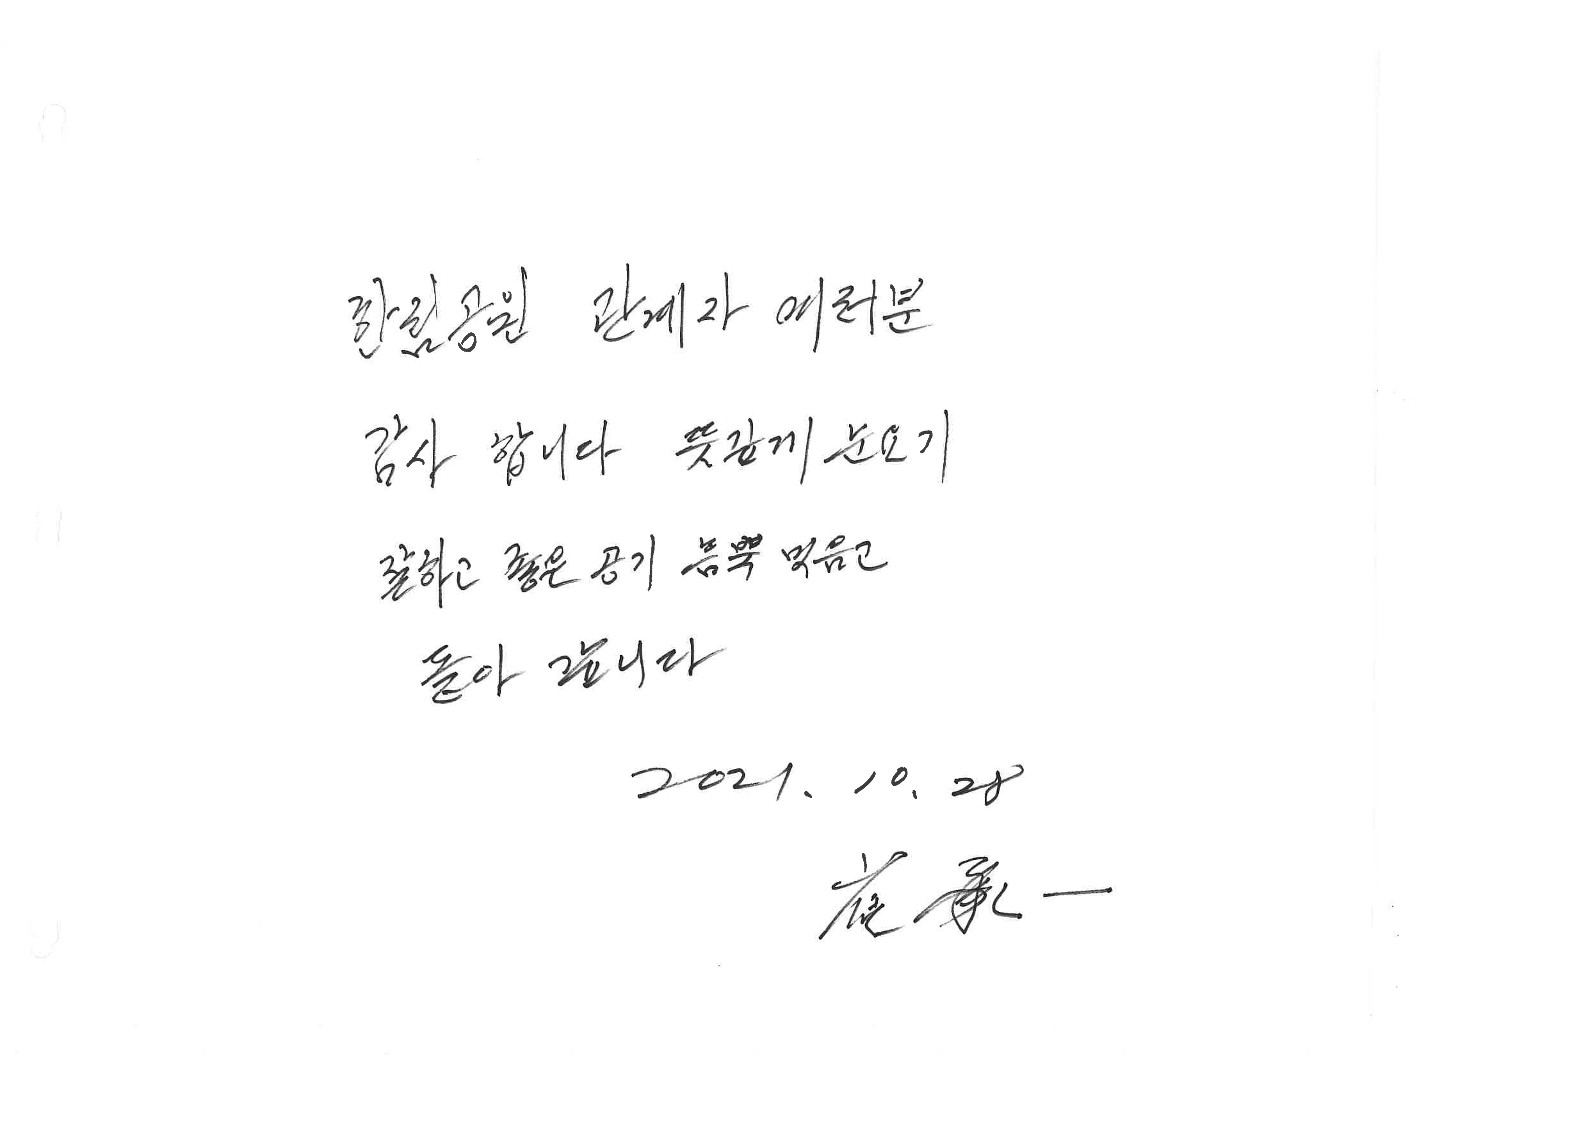 한림공원 관계자 여러분
감사 합니다 뜻깊게 눈요기
잘하고 좋은 공기 듬뿍 먹음고
돌아 갑니다
2021. 10. 28
承一